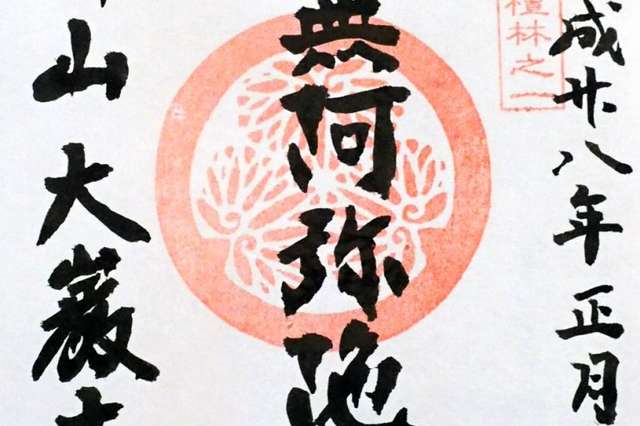 成廿八年正月
檀林之一
無阿弥陀
山大巌